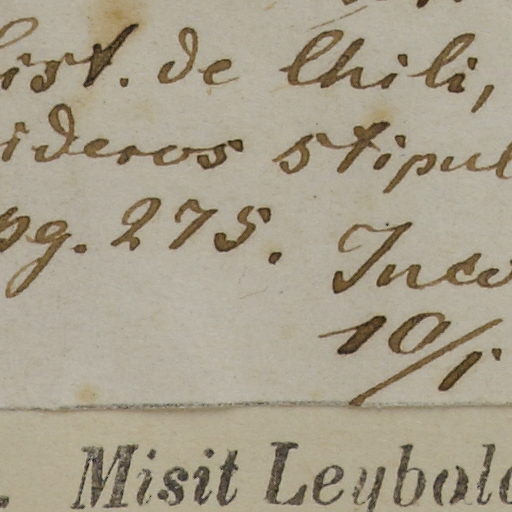 ist. de Chili,
ideros stipul
pg. 275. Inco
10/1.
. Misit Leybold